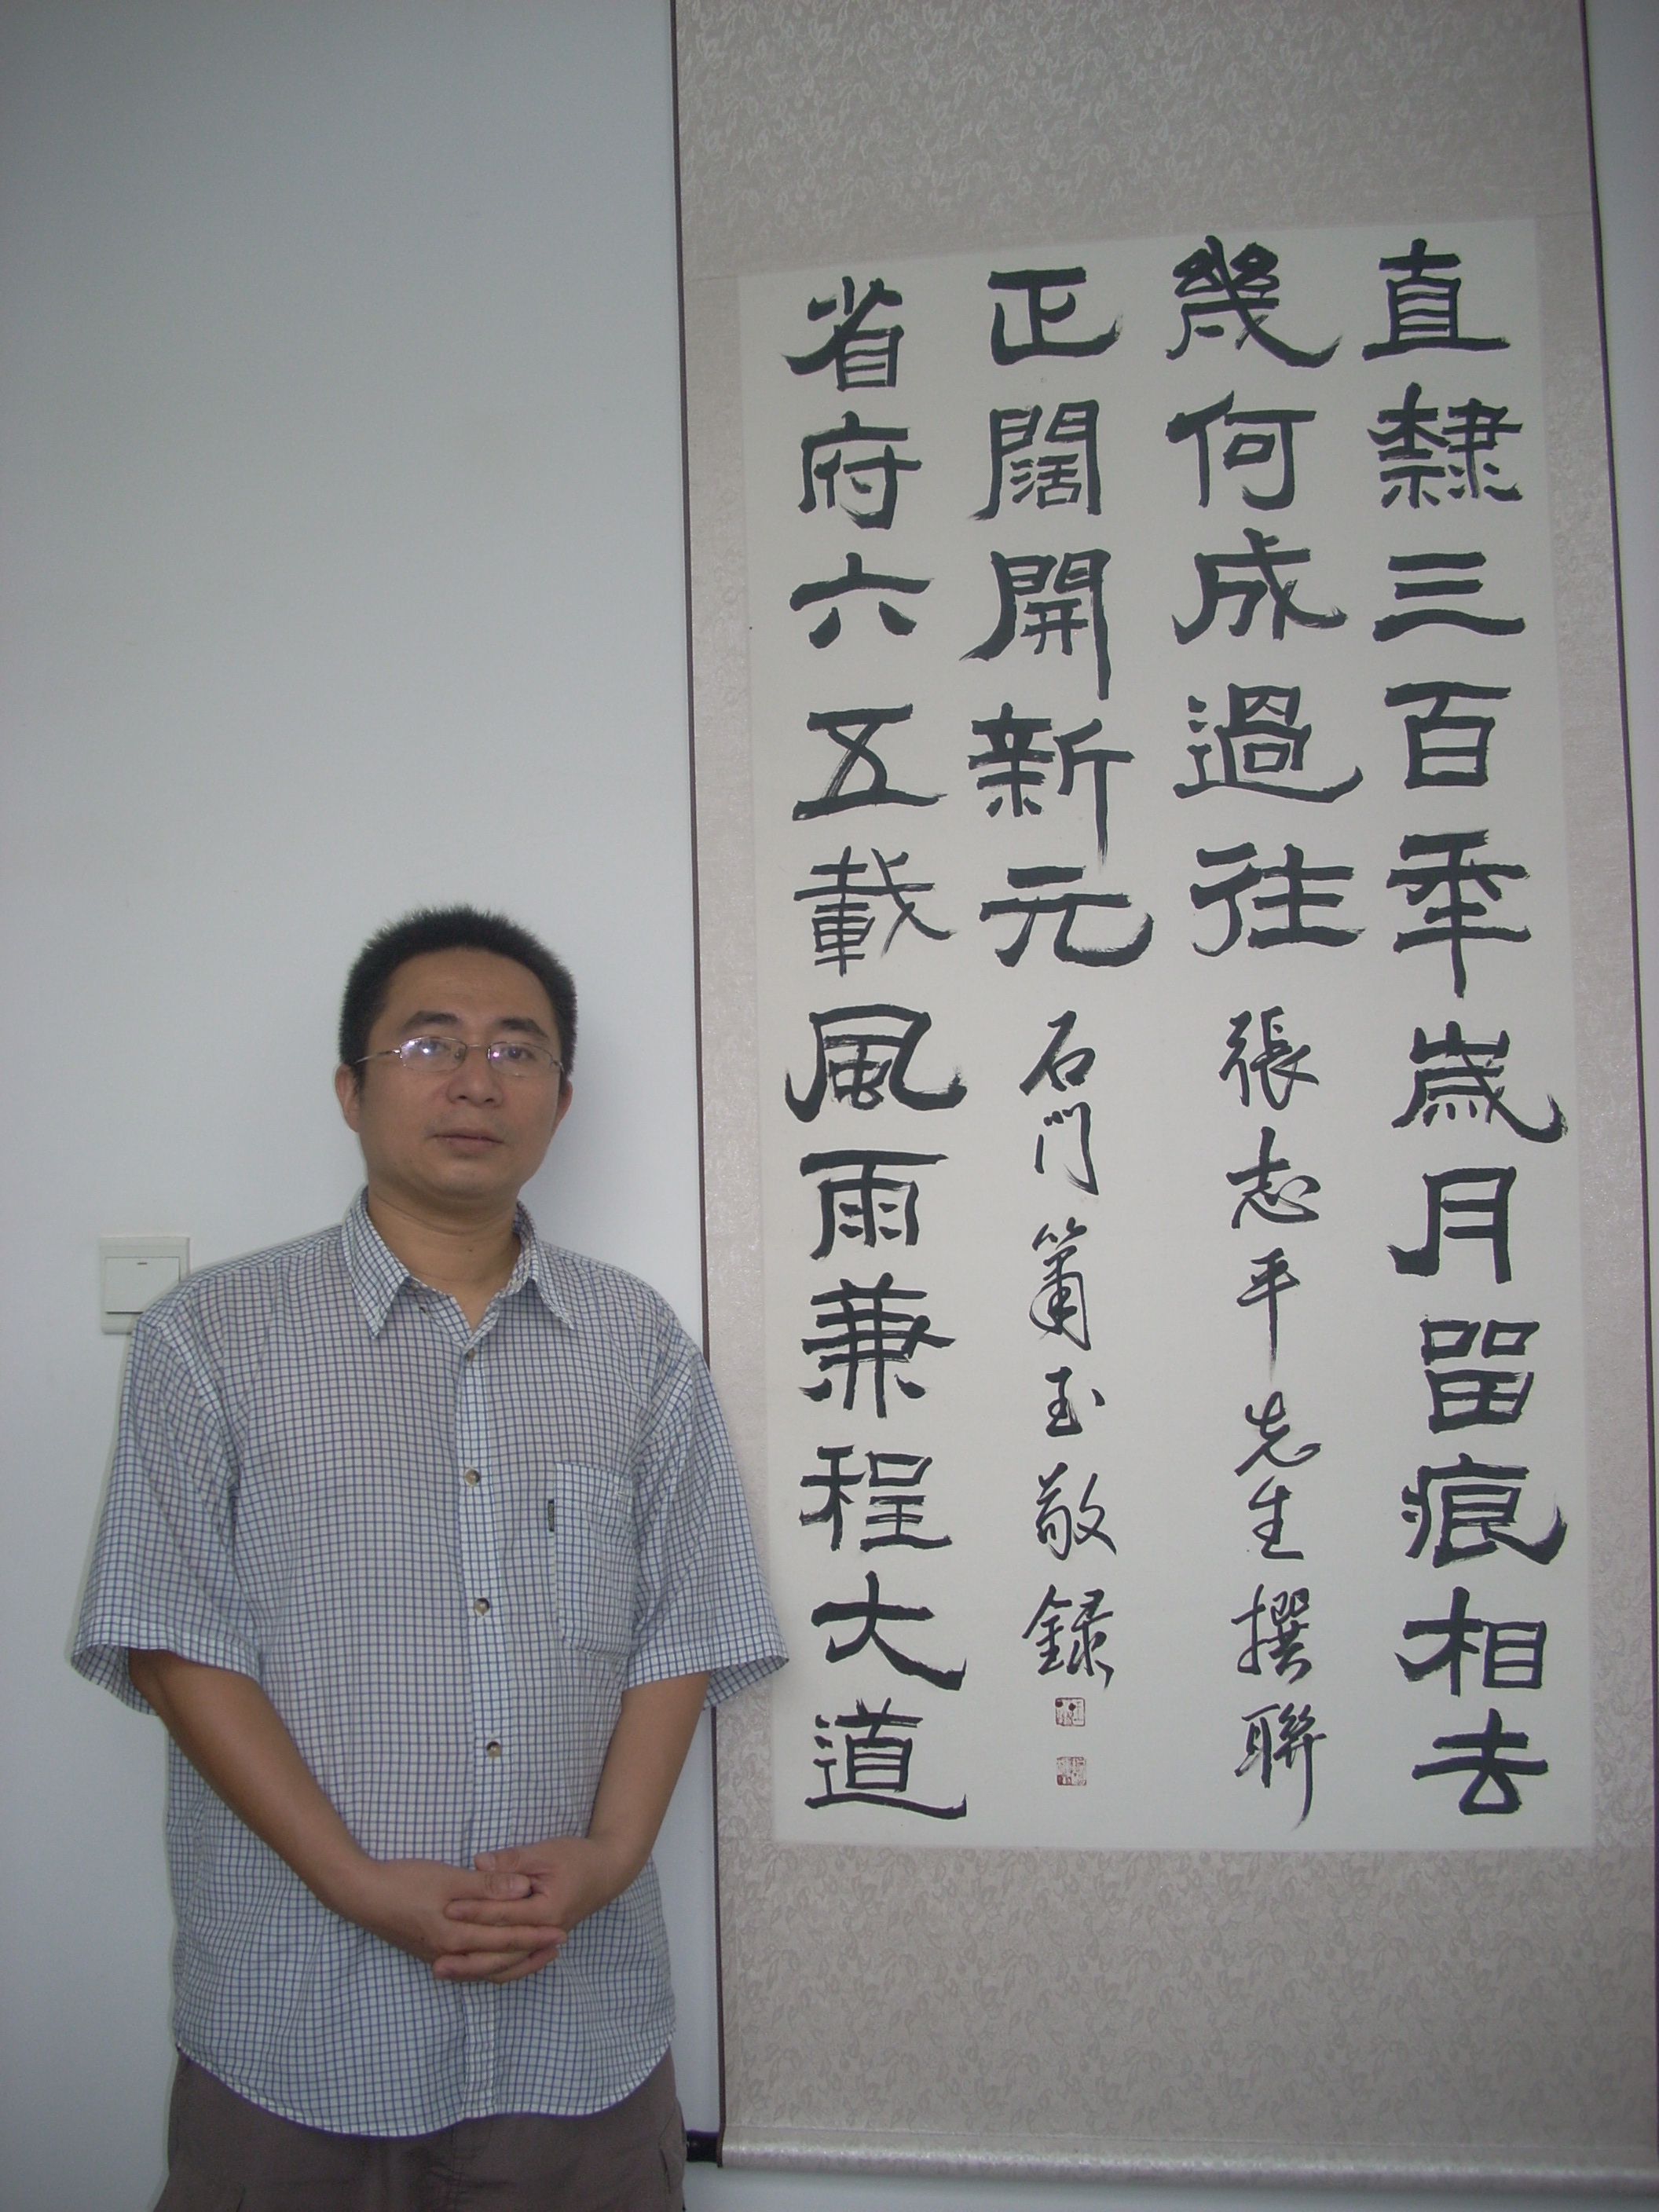 直隸三百秊歲月留痕相去
幾何成過往 張志平先生撰聯
省府六五載風雨兼程大道
正闊開新元 石門簫玉敬録